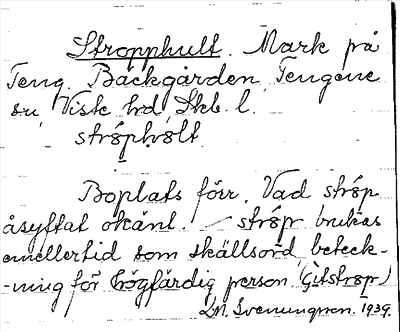 Stropphult. Mark på
Teng. Backgården, Tengene
sn, Viste hd, Skb. l.
strǫphǫlt
Boplats förr. Vad strǫp
åsyftat okänt. – strǫp brukas
emellertid som skällsord, beteck-
-ning för högfärdig person.
LM. Svenungsson. 1939.